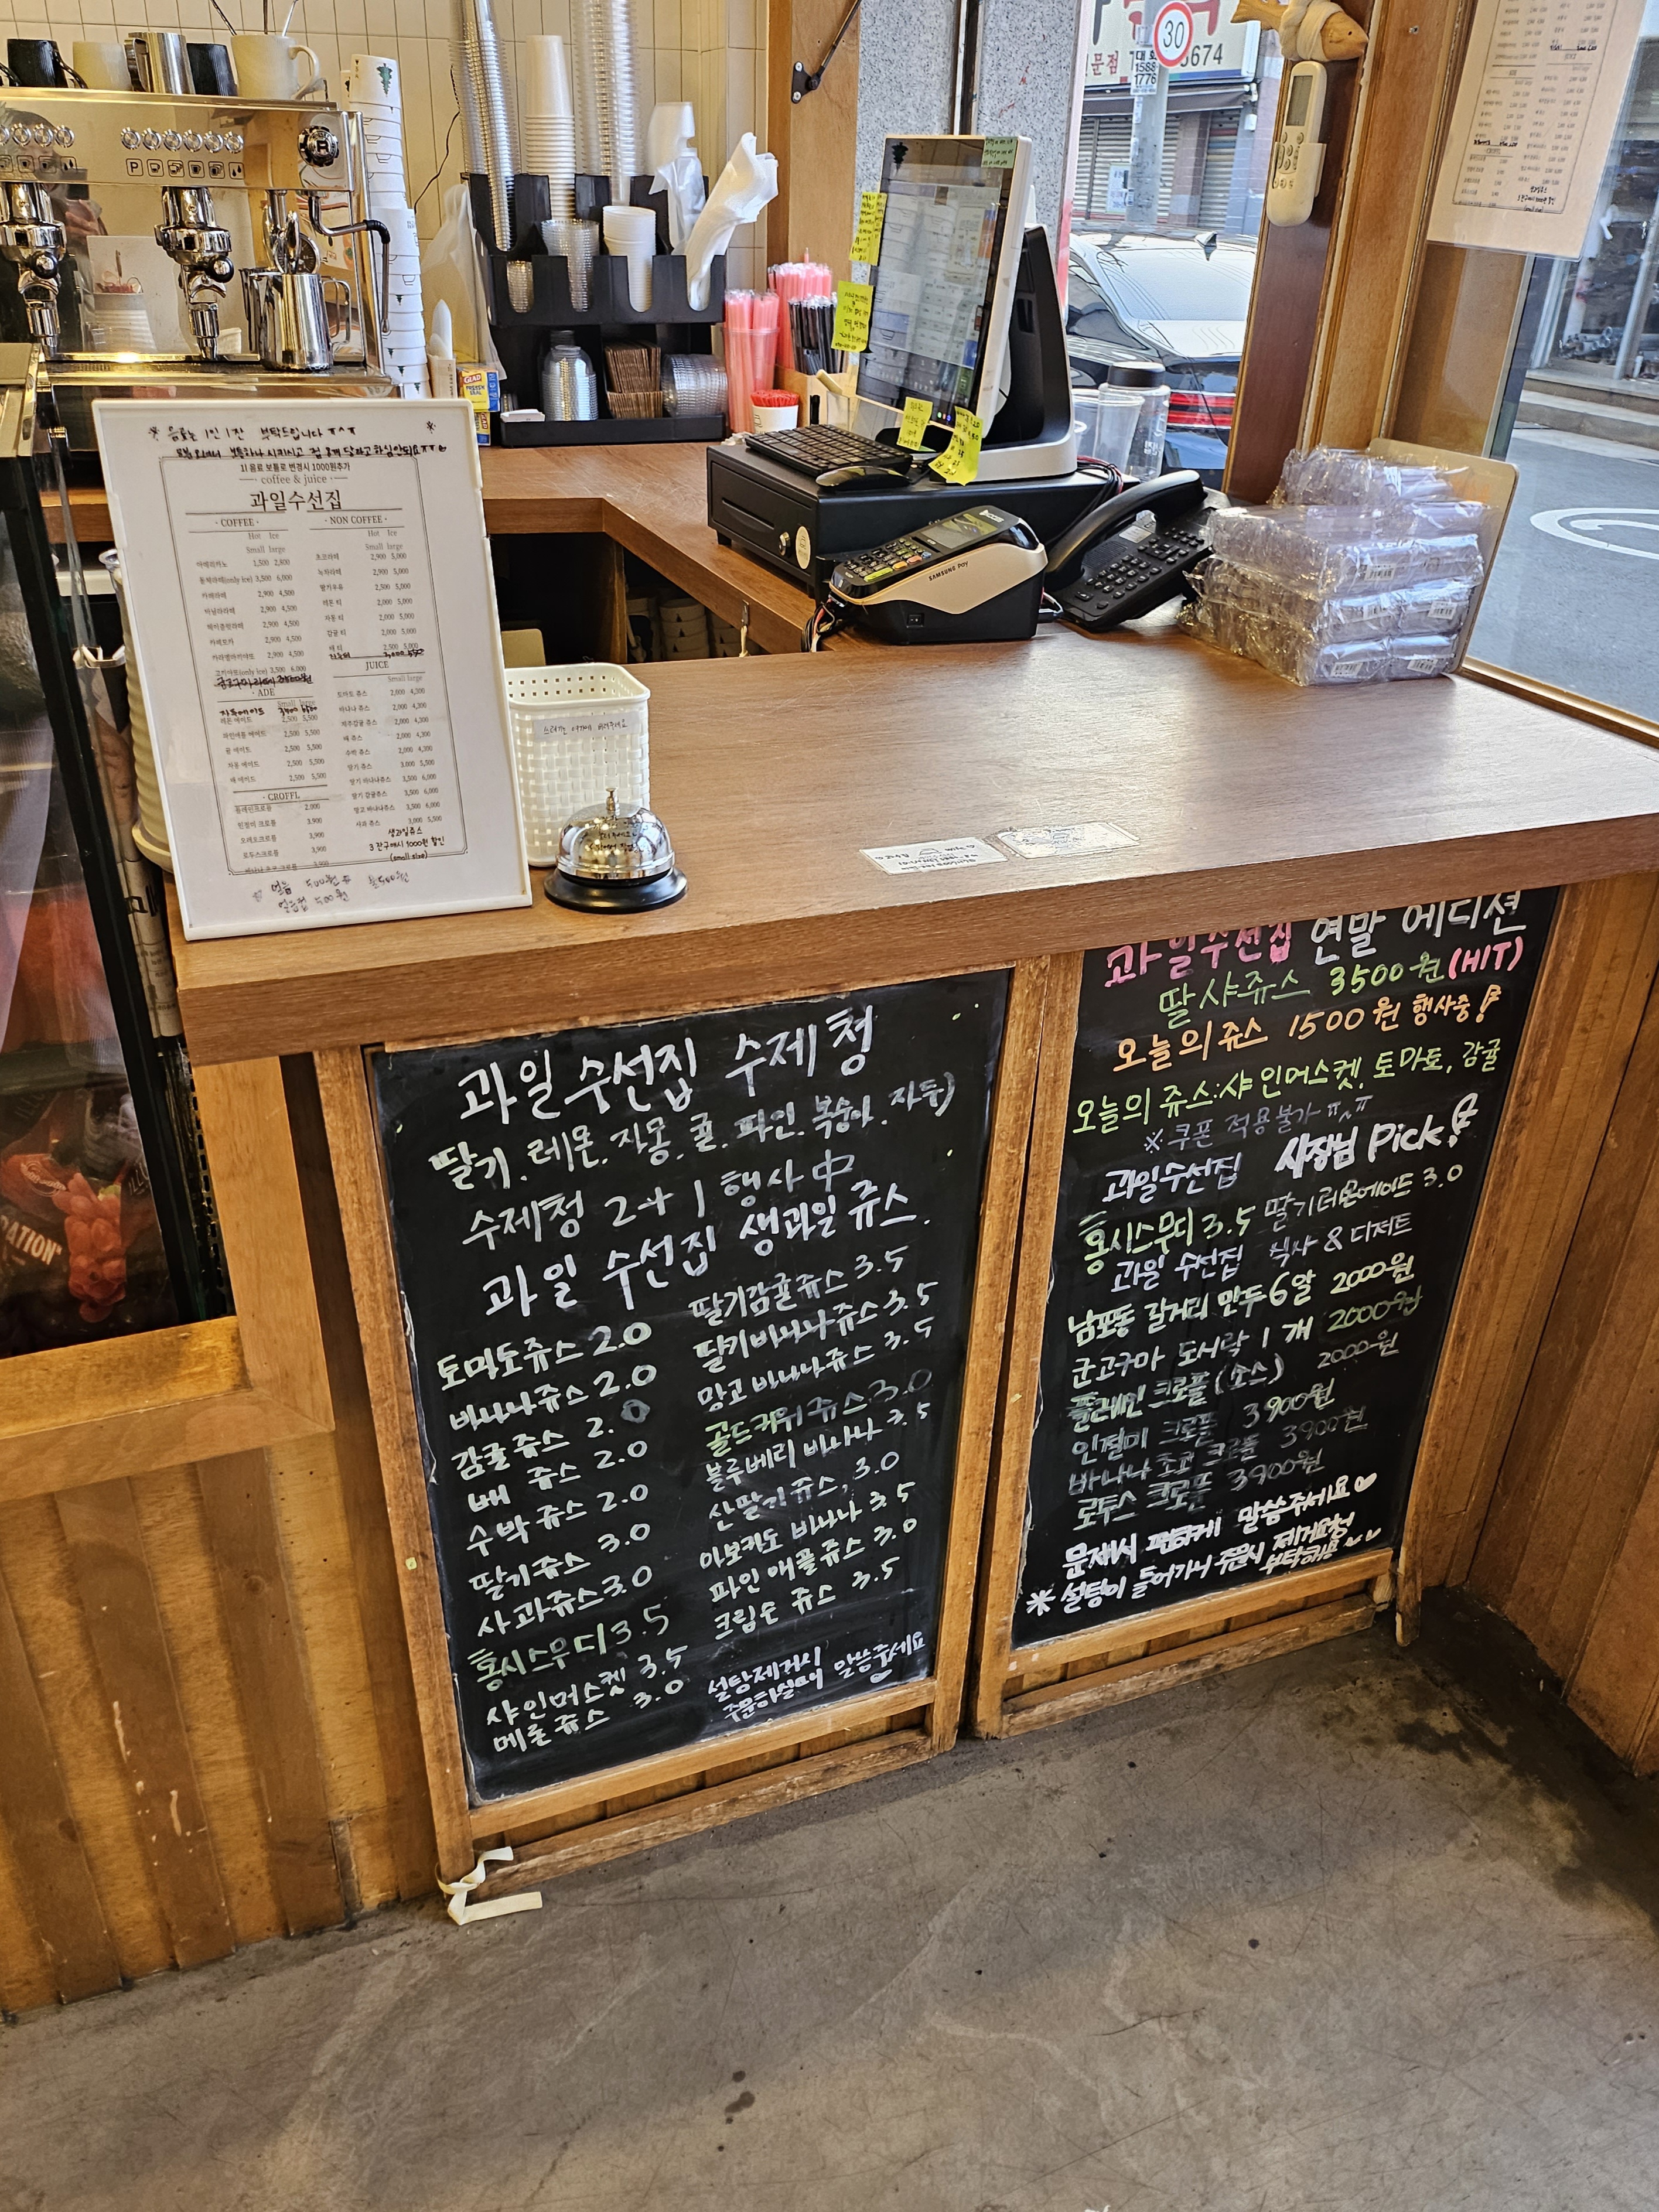 30
문점
5674
1588
1776
GLAD
SAMSUNG Pay
※ 음료는 1인 1잔 부탁드립니다 ㅠㅅㅠ ※
1l 음료 보틀로 변경시 1000원추가
coffee & juice
과일수선집
· COFFEE ·
Hot Ice
Small large
아메리카노 1,500 2,800
돌체라떼(only ice) 3,500 6,000
카페라떼 2,900 4,500
바닐라라떼 2,900 4,500
헤이즐넛라떼 2,900 4,500
카페모카 2,900 4,500
카라멜마끼야또 2,900 4,500
(only ice) 3,500 6,000
· ADE ·
Small large
자두에이드
레몬 에이드 2,500 5,500
파인애플 에이드 2,500 5,500
귤 에이드 2,500 5,500
자몽 에이드 2,500 5,500
배 에이드 2,500 5,500
· CROFFL ·
플레인크로플 2,000
인절미 크로플 3,900
오레오크로플 3,900
로투스크로플 3,900
· NON COFFEE ·
Hot Ice
Small large
초코라떼 2,900 5,000
녹차라떼 2,900 5,000
딸기우유 2,500 5,000
레몬 티 2,000 5,000
자몽 티 2,000 5,000
감귤 티 2,000 5,000
배 티 2,500 5,000
JUICE
Small large
토마토 쥬스 2,000 4,300
바나나 쥬스 2,000 4,300
제주감귤 쥬스 2,000 4,300
배 쥬스 2,000 4,300
수박 쥬스 2,000 4,300
딸기 쥬스 3,000 5,500
딸기 바나나쥬스 3,500 6,000
딸기 감귤쥬스 3,500 6,000
망고 바나나쥬스 3,500 6,000
사과 쥬스 3,000 5,500
생과일쥬스
3잔구매시 1000원 할인
(small size)
얼음컵 500원
쓰레기는 여기에 버려주세요
과일수선집 수제청
딸기. 레몬. 자몽. 귤. 파인. 복숭아. 자두)
수제청 2+1 행사中
과일 수선집 생과일 쥬스.
토마토쥬스 2.0
바나나쥬스 2.0
감귤쥬스 2.0
배 쥬스 2.0
수박쥬스 2.0
딸기쥬스 3.0
사과쥬스 3.0
홍시스무디 3.5
샤인머스켓 3.5
메론쥬스 3.0
딸기감귤쥬스 3.5
딸기바나나쥬스 3.5
망고바나나쥬스 3.5
골드키위쥬스 3.0
블루베리 바나나 3.5
산딸기쥬스, 3.0
아보카도 바나나 3.5
파인애플쥬스 3.0
크림슨 쥬스 3.5
설탕제거시
주문하실때 말씀주세요
과일수선집 연말 에디션
딸샤쥬스 3500원 (HIT)
오늘의쥬스 1500원 행사중!
오늘의 쥬스:샤인머스켓, 토마토, 감귤
※쿠폰 적용불가 ㅠㅅㅠ
과일수선집 사장님 Pick!
홍시스무디 3.5 딸기레몬에이드 3.0
과일 수선집 식사 & 디저트
남포동 길거리 만두 6알 2000원
군고구마 도시락 1개 2000원
플레인 크로플(소스) 2000원
인절미 크로플 3900원
바나나 초코 크로플 3900원
로투스 크로플 3900원
문제시 편하게 말씀주세요♡
※설탕이 들어가니 주문시 제거요청
부탁해용♡
RATION